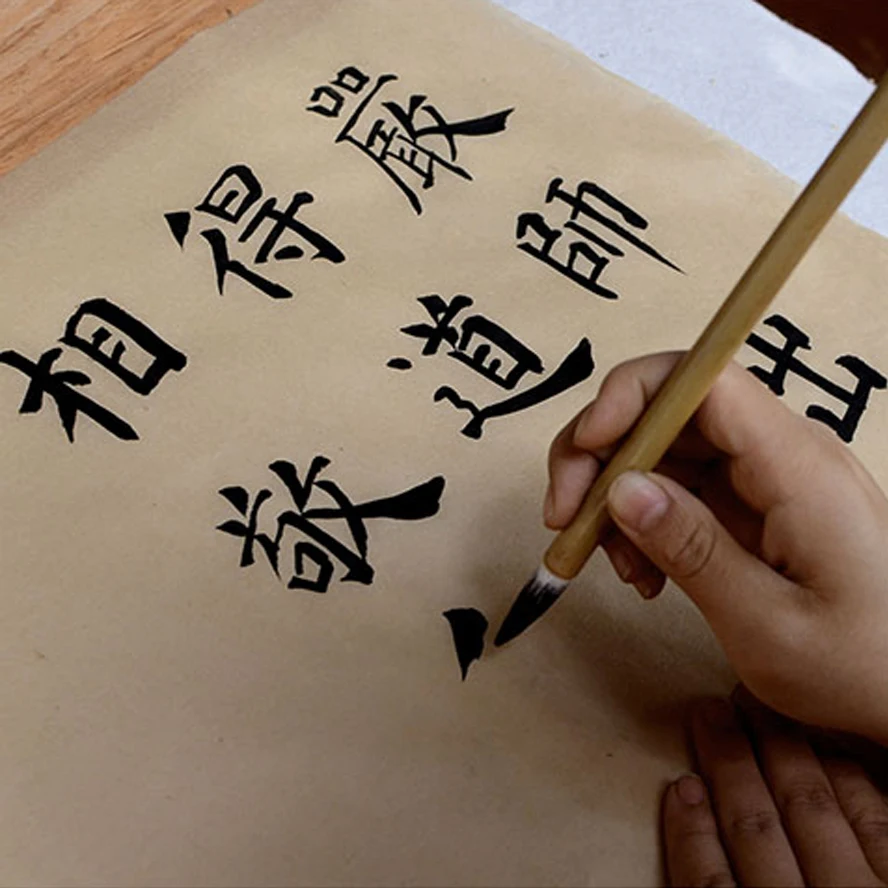 出
師道敬
嚴得相